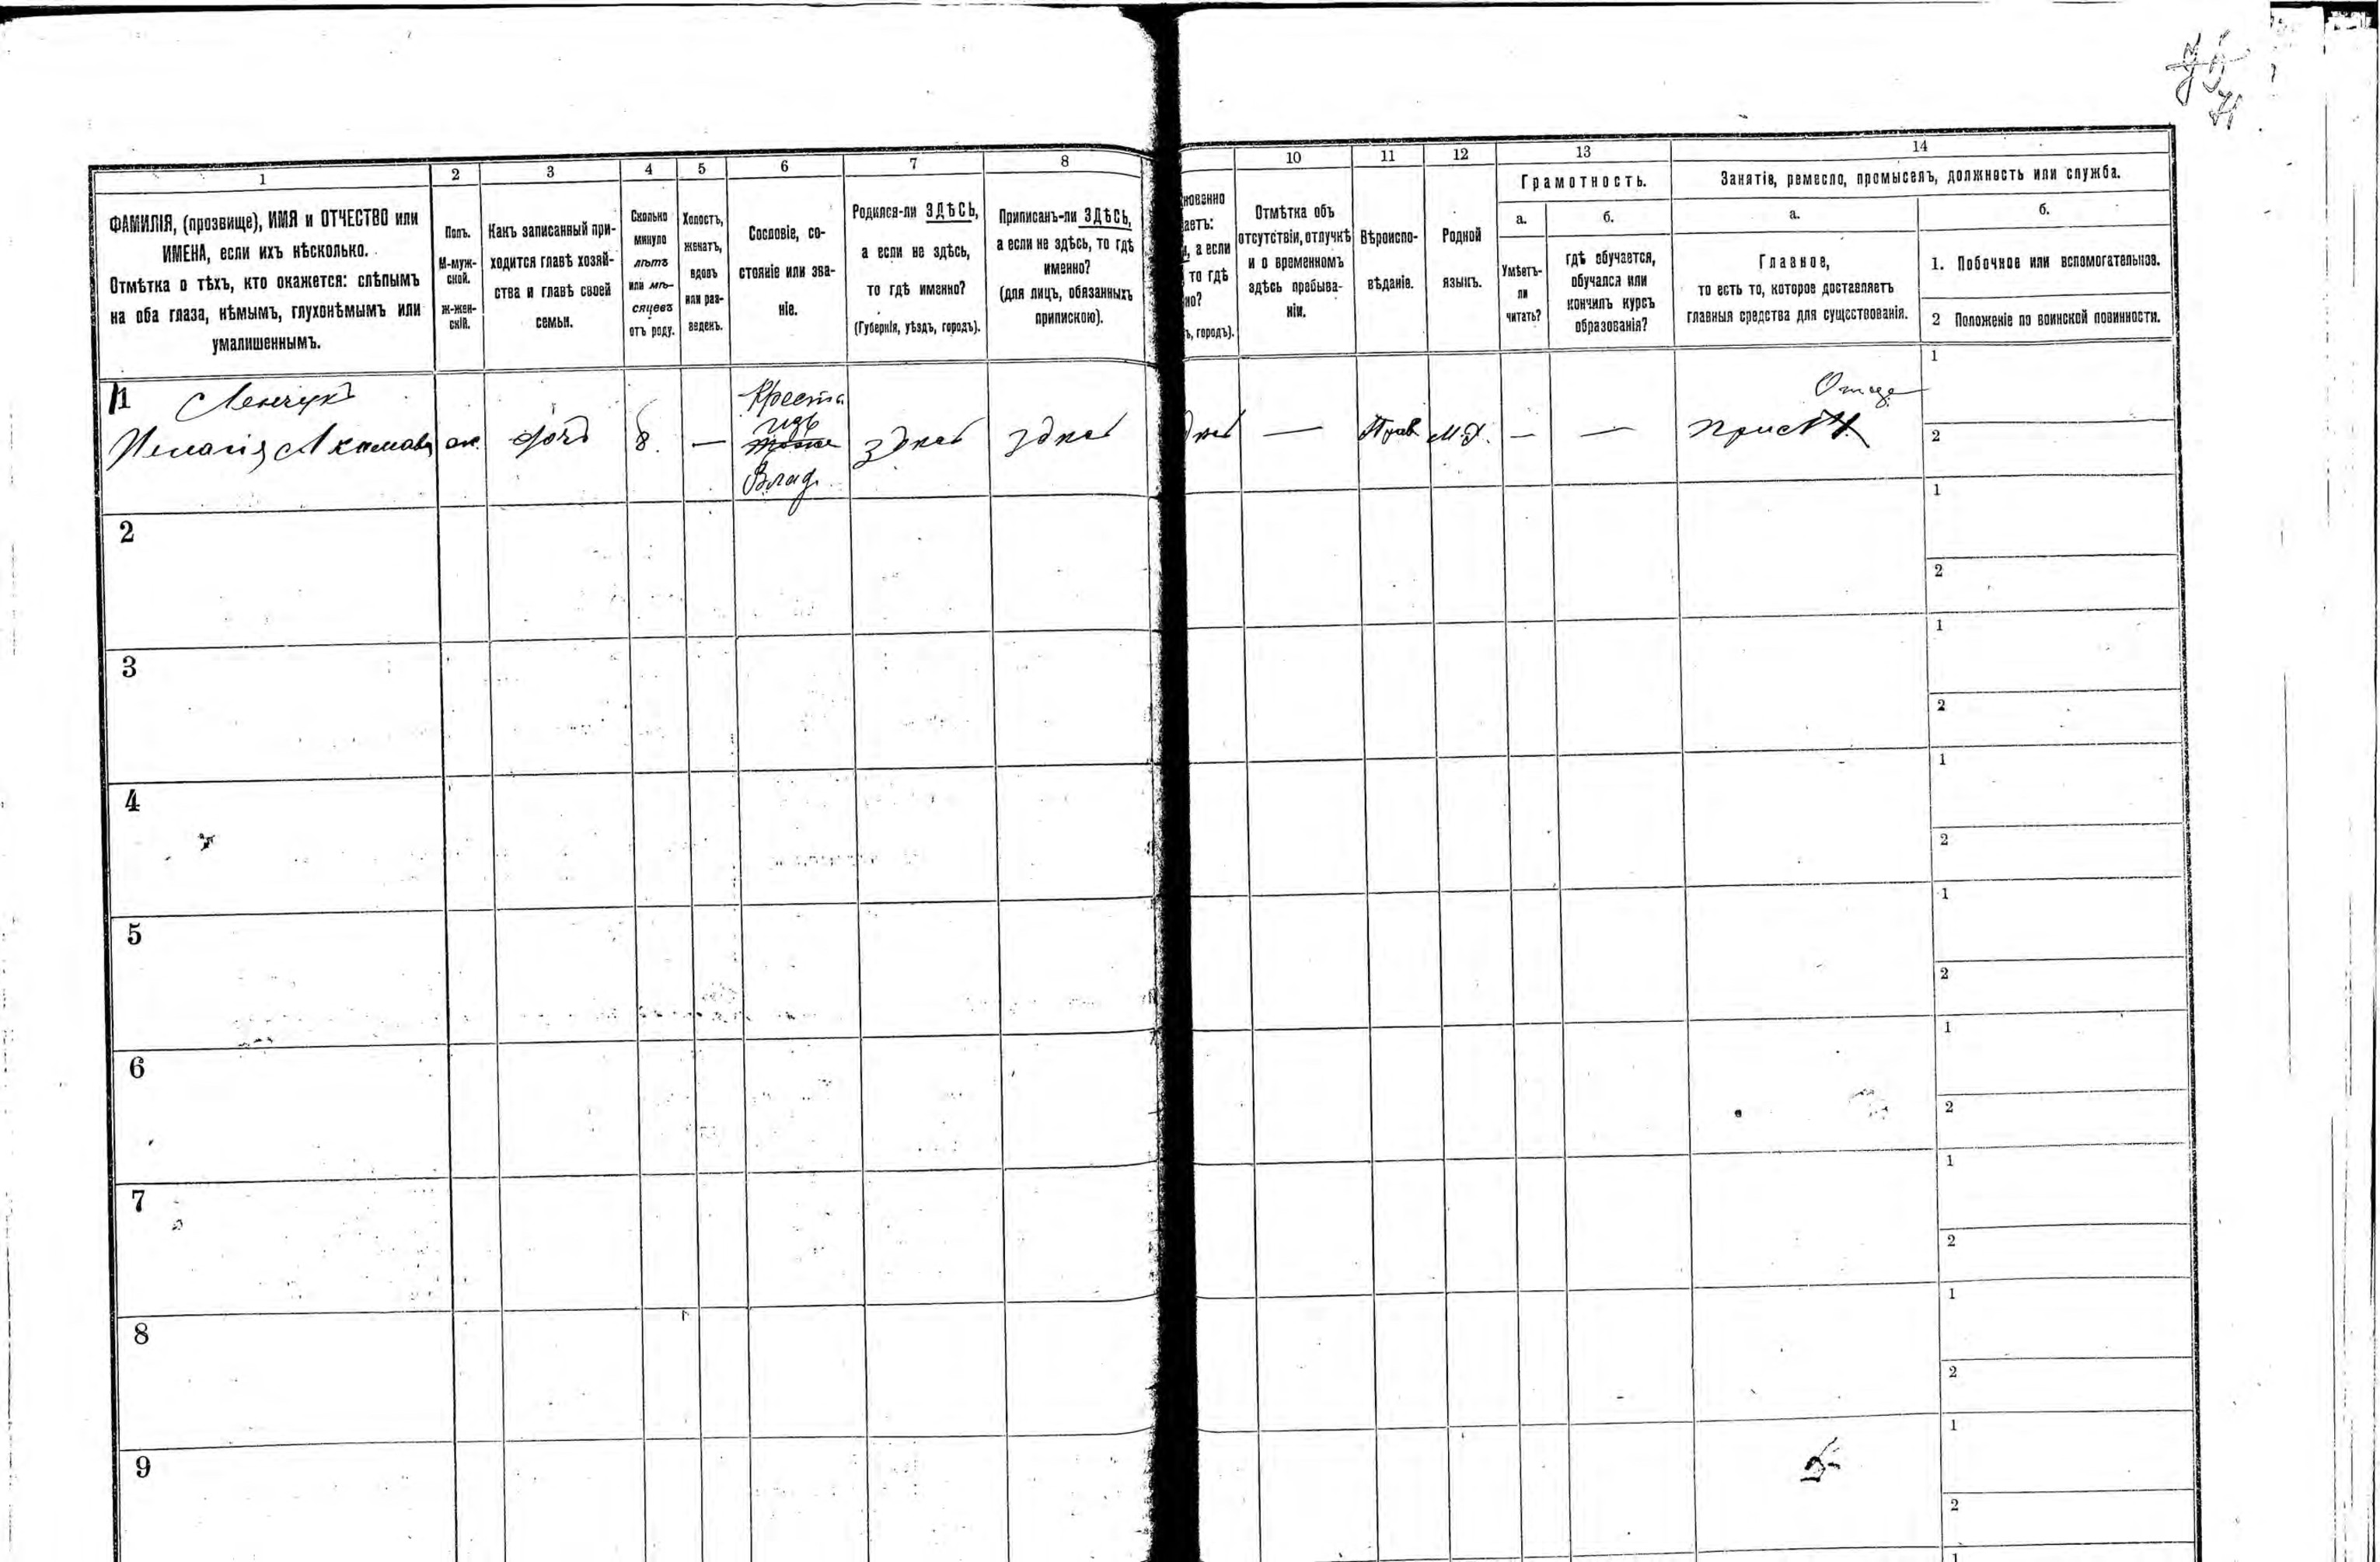 1
2
3
4
5
6
7
8
ФАМИЛІЯ, (прозвище), ИМЯ и ОТЧЕСТВО или
ИМЕНА, если ихъ нѣсколько.
Отмѣтка о тѣхъ, кто окажется: слѣпымъ
на оба глаза, нѣмымъ, глухонѣмымъ или
умалишеннымъ.
Полъ.
М-муж-
ской.
Ж-жен-
скій.
Какъ записанный при-
ходится главѣ хозяй-
ства и главѣ своей
семьи.
Сколько
минуло
лѣтъ
или мѣ-
сяцевъ
отъ роду.
Холостъ,
женатъ,
вдовъ
или раз-
веденъ.
Сословіе, со-
стояніе или зва-
ніе.
Родился-ли ЗДѢСЬ,
а если не здѣсь,
то гдѣ именно?
(Губернія, уѣздъ, городъ).
Приписанъ-ли ЗДѢСЬ,
а если не здѣсь, то гдѣ
именно?
(для лицъ, обязанныхъ
припискою).
10
11
12
13
14
, а если
то гдѣ
но?
ъ, городъ).
Отмѣтка объ
отсутствіи, отлучкѣ
и о временномъ
здѣсь пребыва-
ніи.
Вѣроиспо-
вѣданіе.
Родной
языкъ.
Грамотность.
а.
б.
Умѣетъ-
ли
читать?
гдѣ обучается,
обучался или
кончилъ курсъ
образованія?
Занятіе, ремесло, промыселъ, должность или служба.
а.
б.
Главное,
то есть то, которое доставляетъ
главныя средства для существованія.
1. Побочное или вспомогательное.
2 Положеніе по воинской повинности.
1
Ленчукъ
ж.
дочь
8.
—
Кресть
изъ
Влад.
здѣсь
здѣсь
—
Прав
М.Р.
—
—
1
2
2
1
2
3
1
2
4
1
2
5
1
2
6
1
2
7
1
2
8
1
2
9
1
2
1